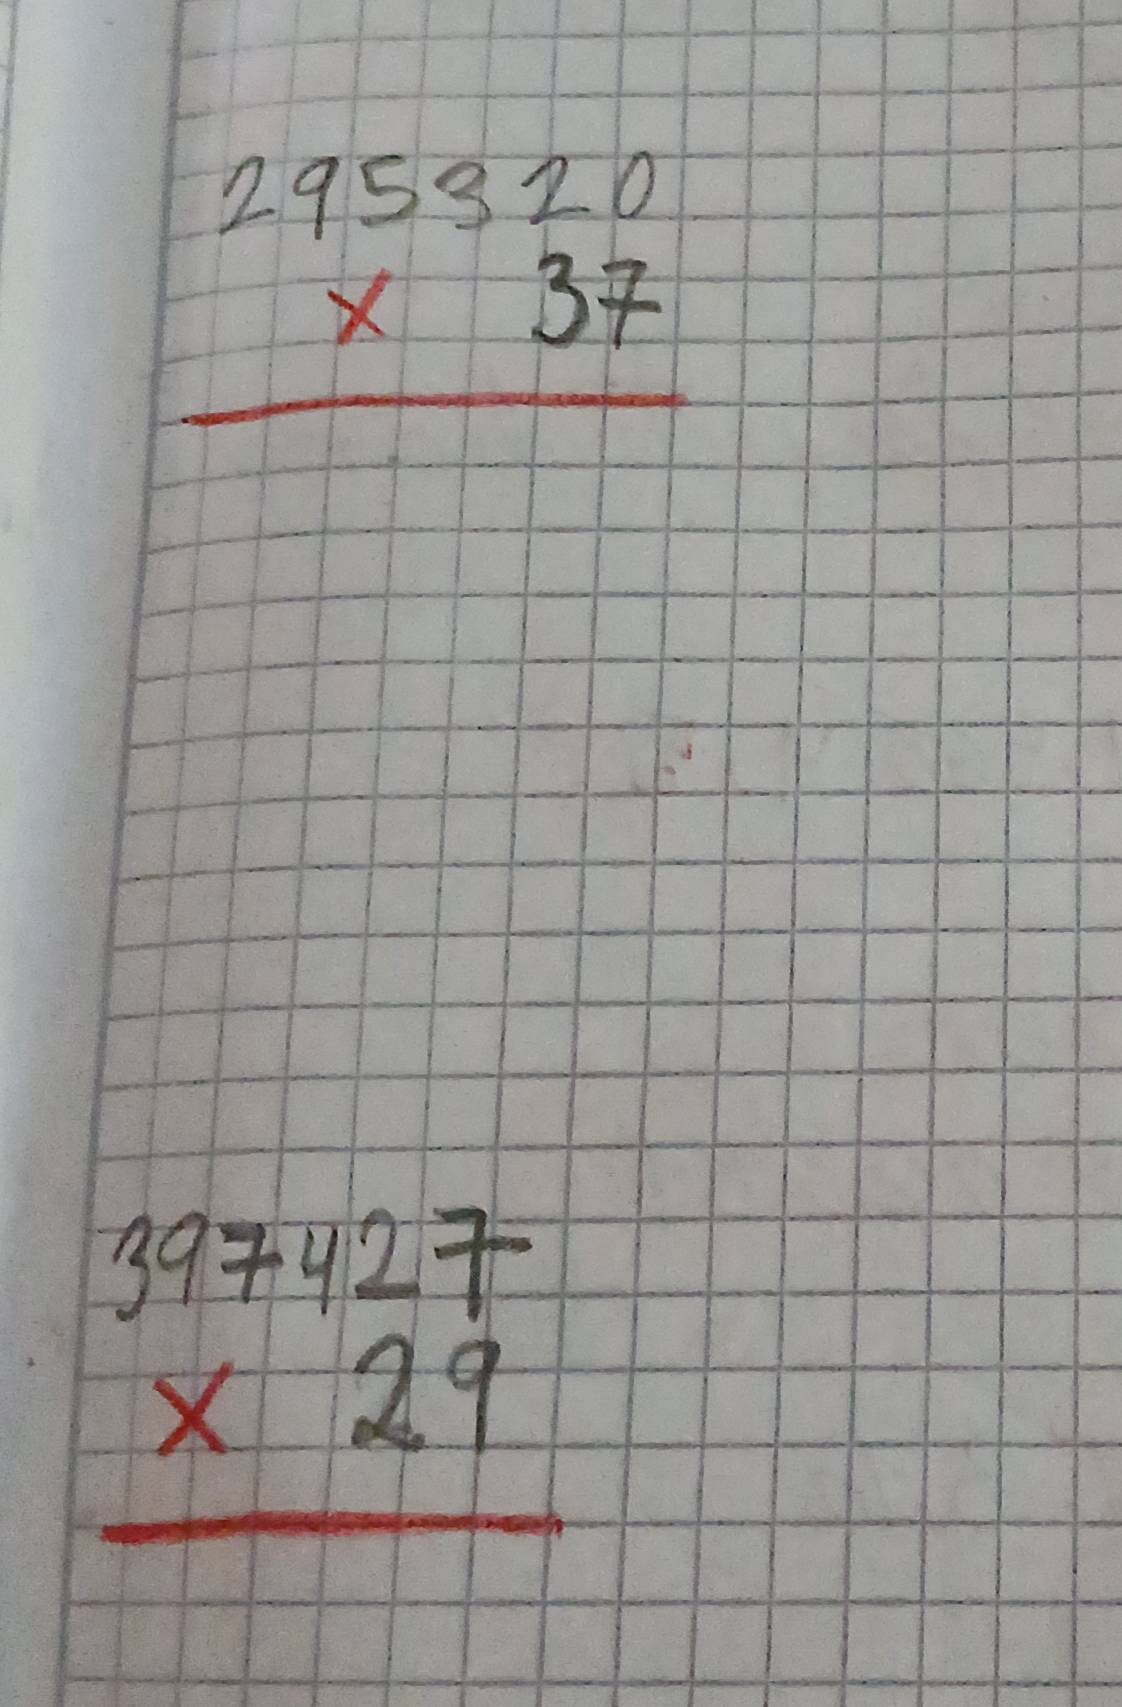 295320
x 37
397427
x 29